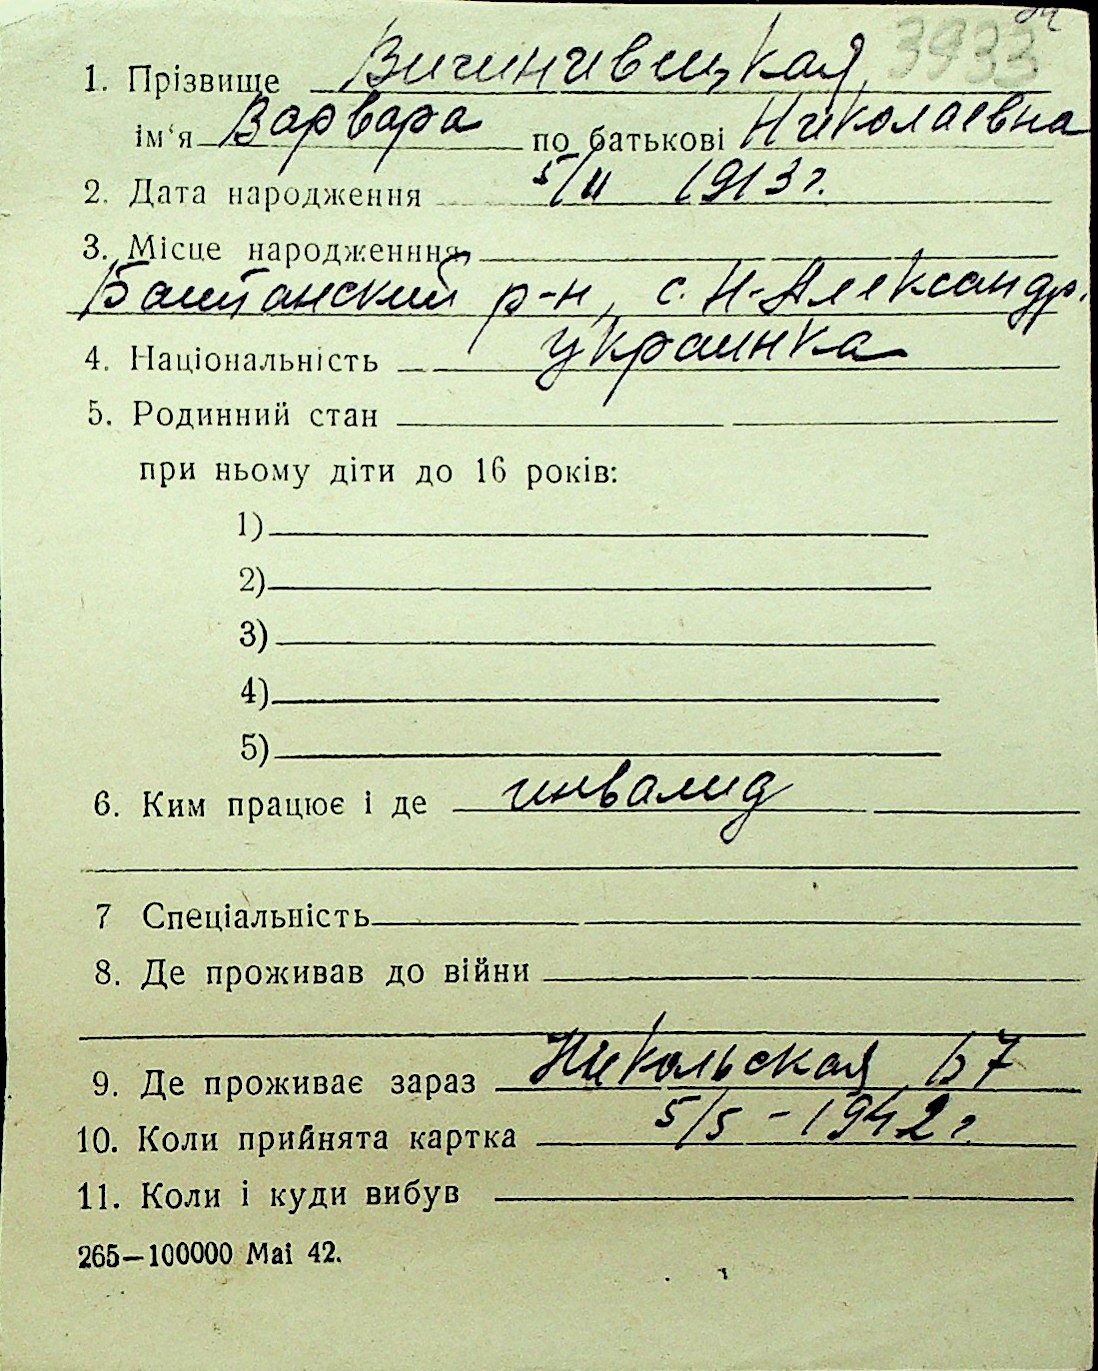 3933
1. Прізвище Вичинивецкая
ім‘я Варвара по батькові Николаевна
2. Дата народження 5/II 1913 г.
3. Місце народженння,
Баштанский р-н, с. Н-Александр.
4. Національність украинка
5. Родинний стан
при ньому діти до 16 років:
1)
2)
3)
4)
5)
6. Ким працює і де инвалид
7 Спеціальність
8. Де проживав до війни
9. Де проживає зараз Никольская 57
10. Коли прийнята картка 5/5 - 1942 г.
11. Коли і куди вибув
265—100000 Mai 42.